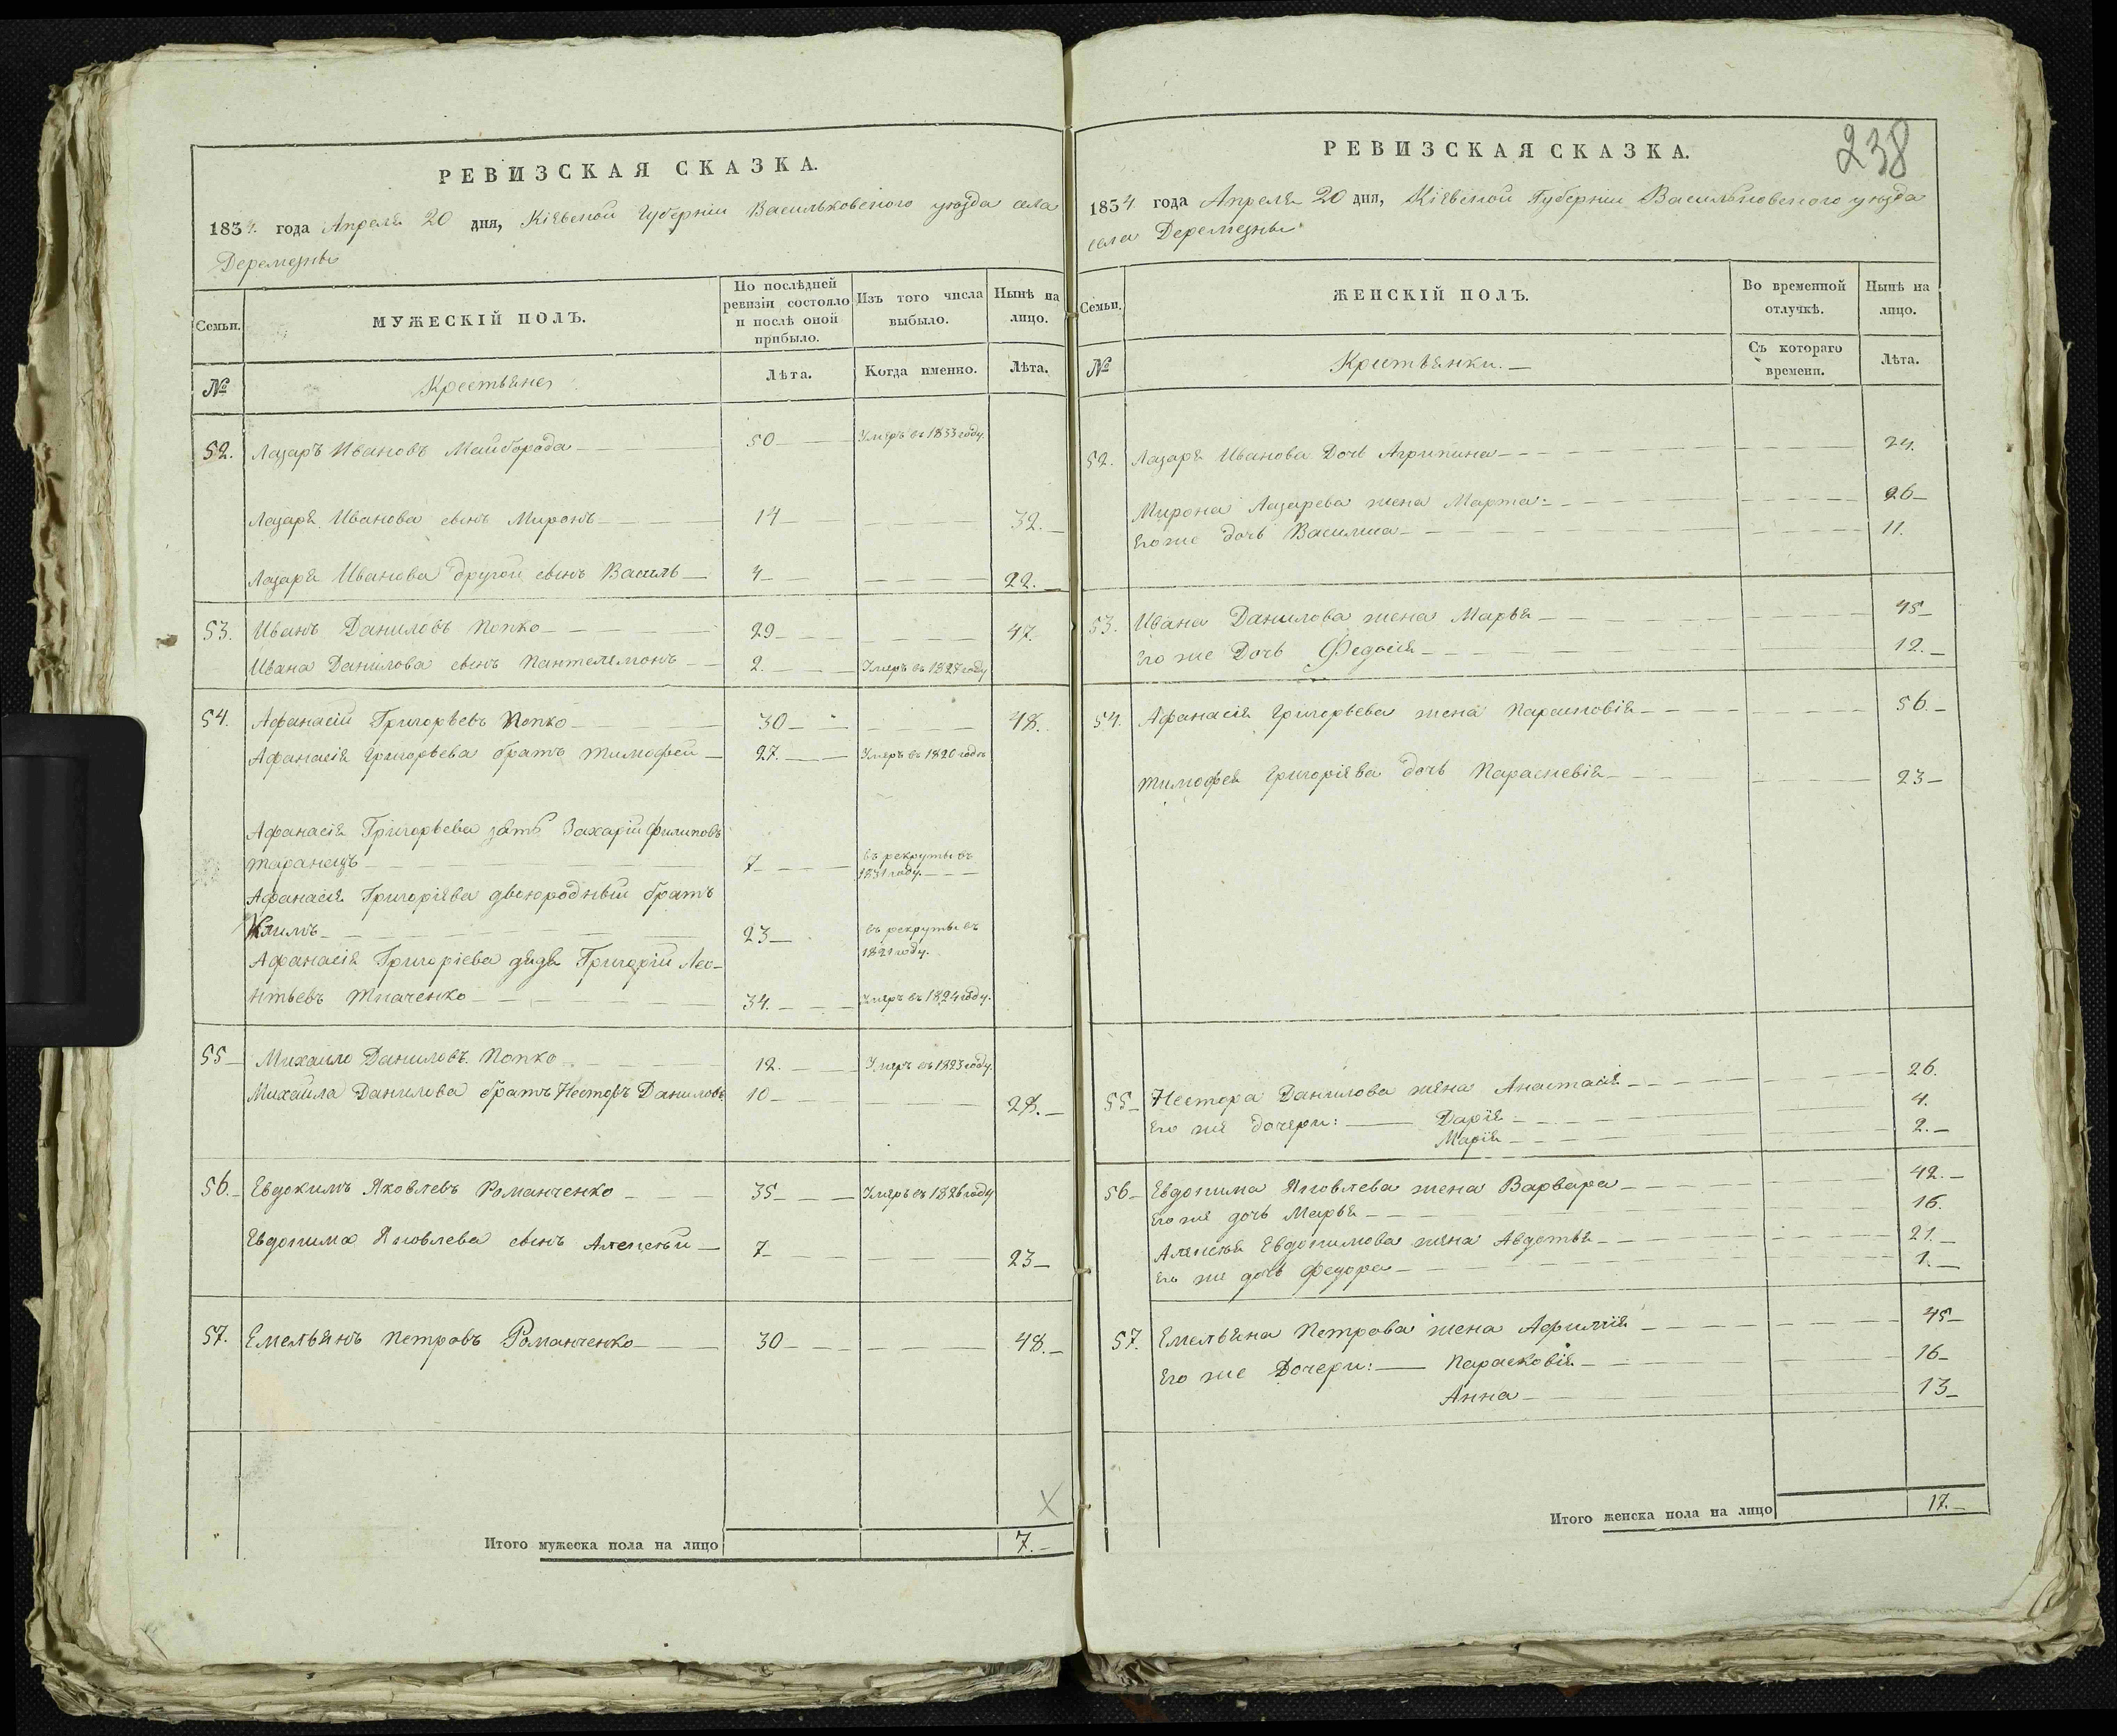 РЕВИЗСКАЯ СКАЗКА.
1834 года Апреля 20 дня, Кіевской Губерніи Васильковского уезда села
Деремезны
Семьи.
МУЖЕСКІЙ ПОЛЪ.
По послѣдней ревизіи состояло и послѣ оной прибыло.
Изъ того числа выбыло.
Нынѣ на лицо.
№
Крестьяне
Лѣта.
Когда именно.
Лѣта.
52. Лазаръ Ивановъ Майборода 50 Умеръ въ 1833 году.
Лазаря Иванова сынъ Миронъ 14 32.
Лазаря Иванова другой сынъ Василь 4 22.
53. Иванъ Даниловъ Попко 29 47
Ивана Данилова сынъ Пантелемонъ 2. Умеръ въ 1827 году
54. Афанасій Григорьевъ Попко 30 48.
Афанасія Григорьева братъ Тимофей 27. Умеръ въ 1820 годъ
Афанасія Григорьева зять Захарій Филиповъ
Таранецъ 7 въ рекруты въ
1831 году.
Афанасія Григоріева двоюродный братъ
Климъ 23 въ рекруты въ
1821 году.
Афанасія Григоріева дядя Григорій Лео-
нтьевъ Ткаченко 34. Умеръ въ 1824 году.
55 Михайло Даниловъ Попко 12. Умеръ въ 1823 году.
Михайла Данилова братъ Несторъ Даниловъ 10 28.
56. Евдокимъ Яковлевъ Романченко 35 Умеръ въ 1826 году
Евдокима Яковлева сынъ Алексей 7 23
57. Емельянъ Петровъ Романченко 30 48.
Итого мужеска пола на лицо 7.
238
РЕВИЗСКАЯ СКАЗКА.
1834 года Апреля 20 дня, Кіевской Губерніи Васильковского уезда
села Деремезны
Семьи.
ЖЕНСКІЙ ПОЛЪ.
Во временной отлучкѣ.
Нынѣ на лицо.
№
Крестьянки.
Съ котораго времени.
Лѣта.
52. Лазаря Иванова Дочь Агрипина 24.
Мирона Лазарева жена Марта 26
Его же дочь Василиса 11.
53. Ивана Данилова жена Марья 45
Его же Дочь Федосія 12.
54. Афанасія Григорьева жена Парасковія 56.
Тимофея Григоріева дочь Параскевія 23
55 Нестора Данилова жена Анастасія 26.
Его же дочери: Дарія 4.
Марія 2.
56 Евдокима Яковлева жена Варвара 42.
Его же дочь Марья 16.
Алексея Евдокимова жена Авдотья 21.
Его же дочь Федора 1.
57. Емельяна Петрова жена Афимія 45
Его же Дочери: Парасковія 16
Анна 13
Итого женска пола на лицо 17.